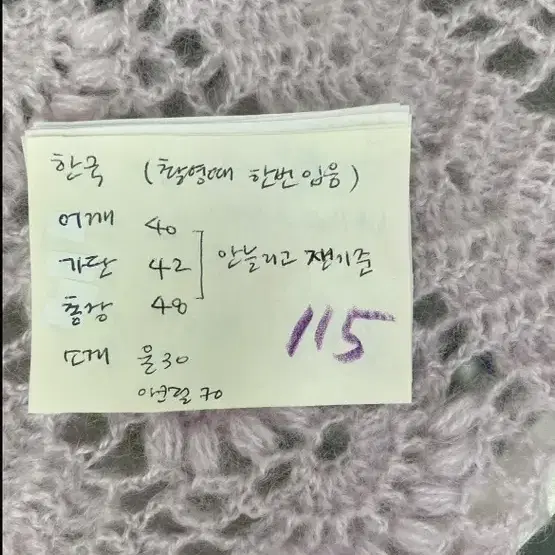 한국 (촬영때 한번 입음)
어깨 40
가단 42 안늘리고 잰기준
총장 48
115
소개 울 30
아크릴 70